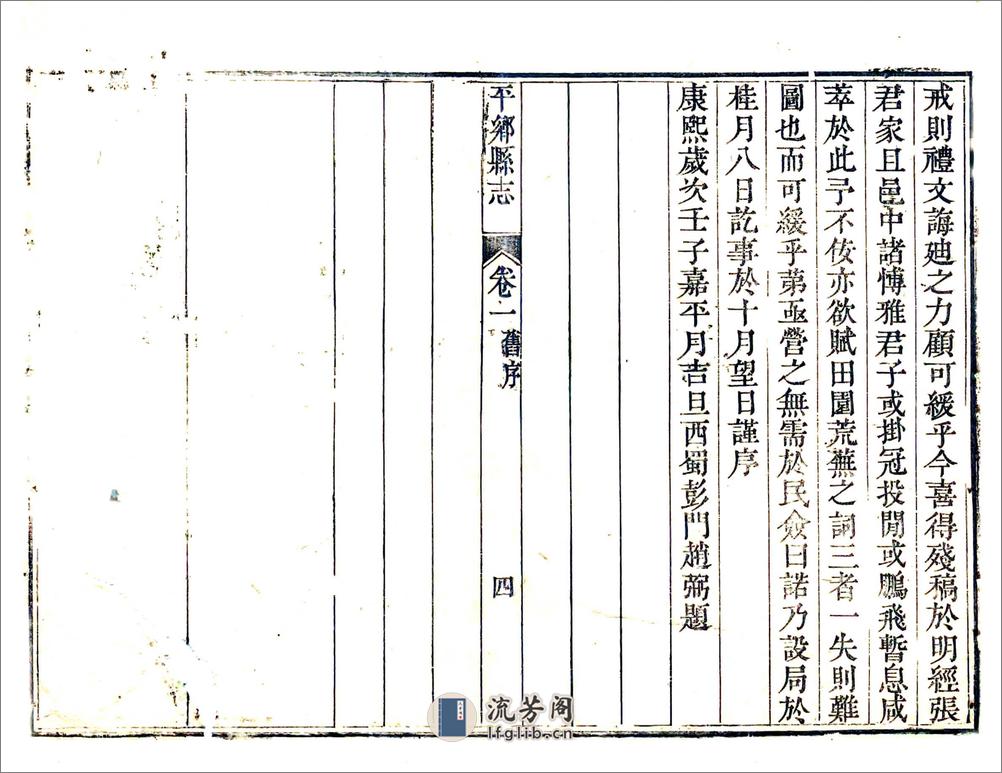 戒則禮文誨廸之力顧可緩乎今喜得殘稿於明經張
君家且邑中諸愽雅君子或掛冠投閒或鵬飛暫息咸
萃於此予不佞亦欲賦田園荒蕪之詞三者一失則難
圖也而可緩乎第亟營之無需於民僉曰諾乃設局於
桂月八日訖事於十月望日謹序
康熙歲次壬子嘉平月吉旦西蜀彭門趙弼題
平鄉縣志
卷一
舊序
四
流芳阁
lfglib.cn